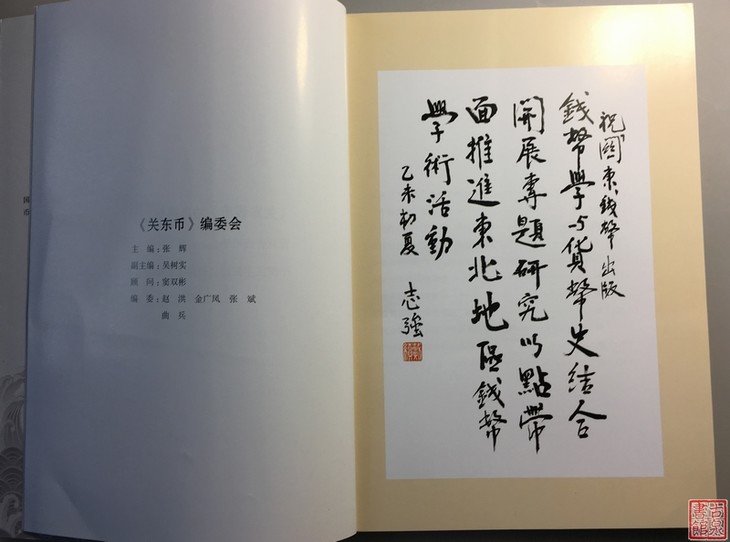 关
币
《关东币》编委会
主 编：张 辉
副主编：吴树实
顾 问：窦双彬
编 委：赵 洪 金广凤 张 斌
曲 兵
祝関東錢幣出版
錢幣學与貨幣史结合
開展專題研究以點帶
面推進東北地區錢幣
學術活動
乙未初夏
志強